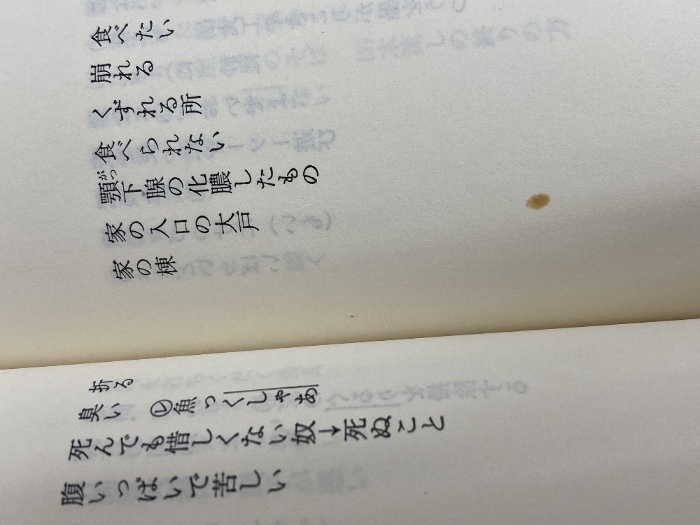 食べたい
崩れる
くずれる所
食べられない
がっ
顎下腺の化膿したもの
家の入口の大戸
家の棟
折る
臭い ㋹魚っくしゃあ
死んでも惜しくない奴→死ぬこと
腹いっぱいで苦しい